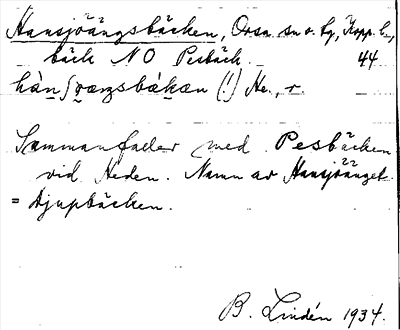 Hansjöängsbäcken, Orsa sn o. tg, Kopp. l.,
bäck NO Pesbäck. 44
hàn∫ɷæŋsbákæn (!) He., r.
Sammanfaller med Pesbäcken
vid Heden. Namn av Hansjöänget.
= Djupbäcken.
B. Lindén 1934.